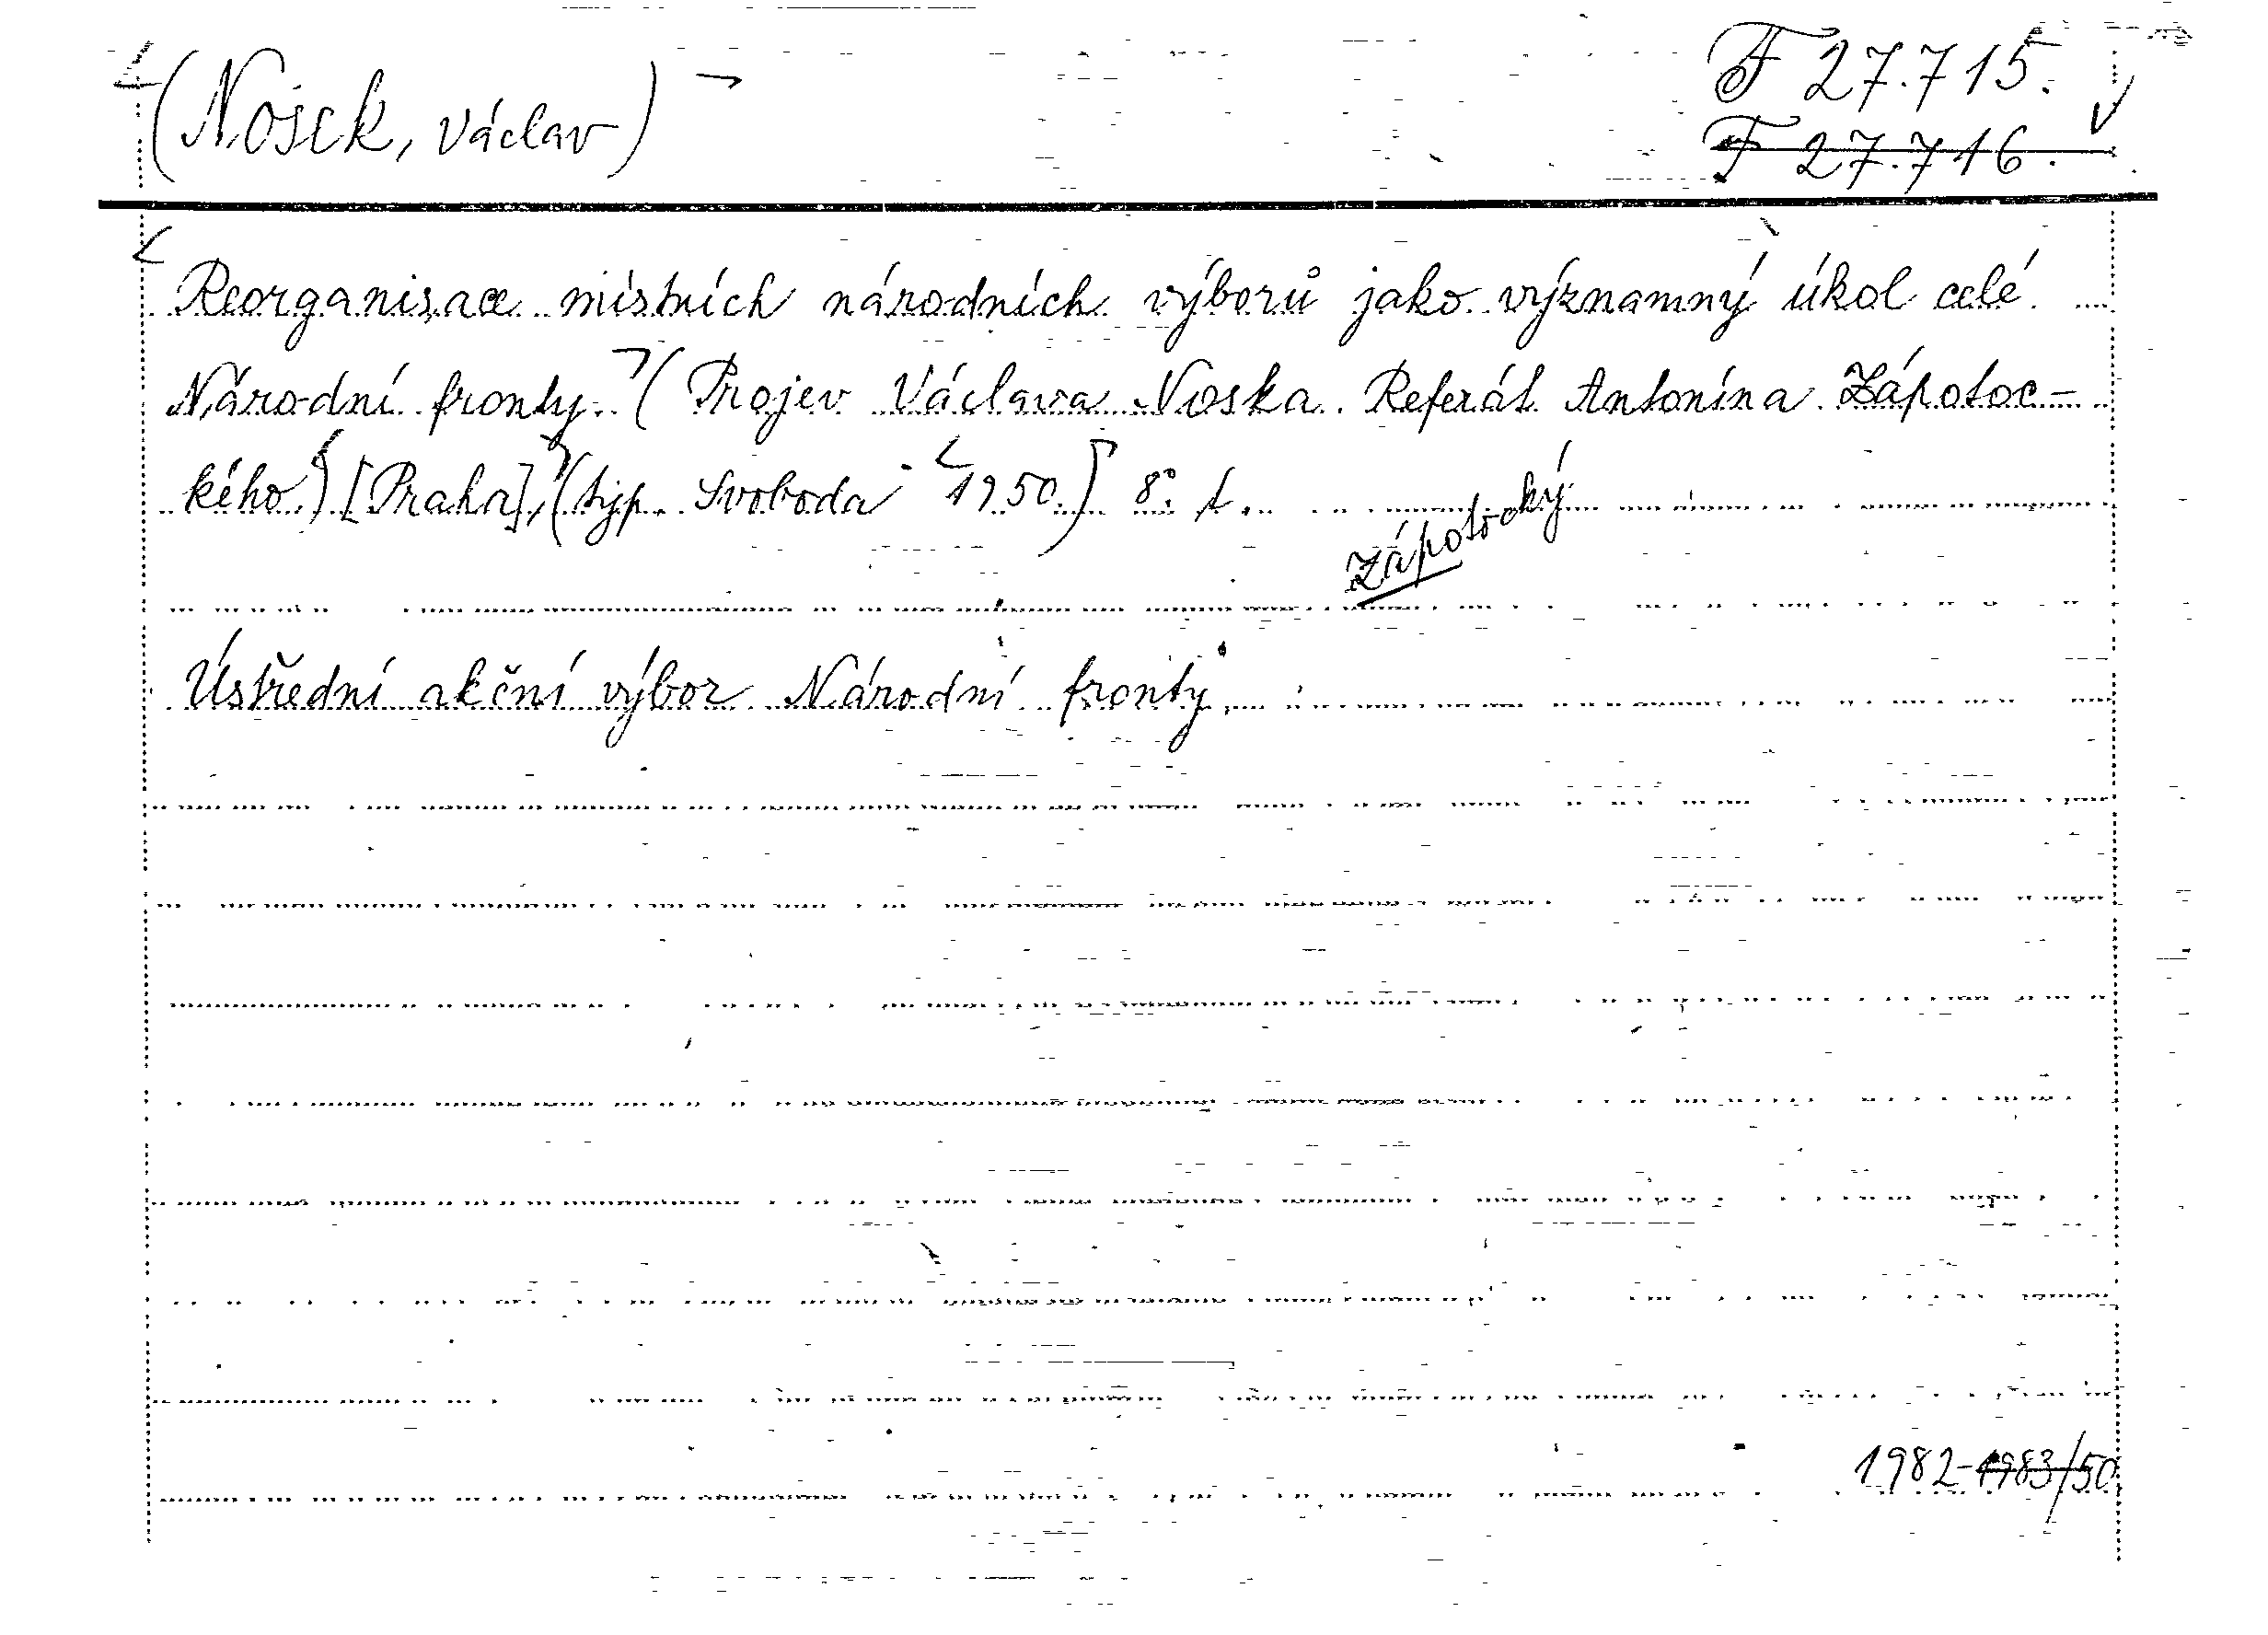 (Nosek, Václav)
F 27.715.
F 27.716.
Reorganisace místních národních výborů jako významný úkol celé
Národní fronty. (Projev Václava Noska. Referát Antonína Zápotoc-
kého.) [Praha], (typ. Svoboda 1950.) 8°. t.
Zápotocký
Ústřední akční výbor Národní fronty.
1982-1983/50